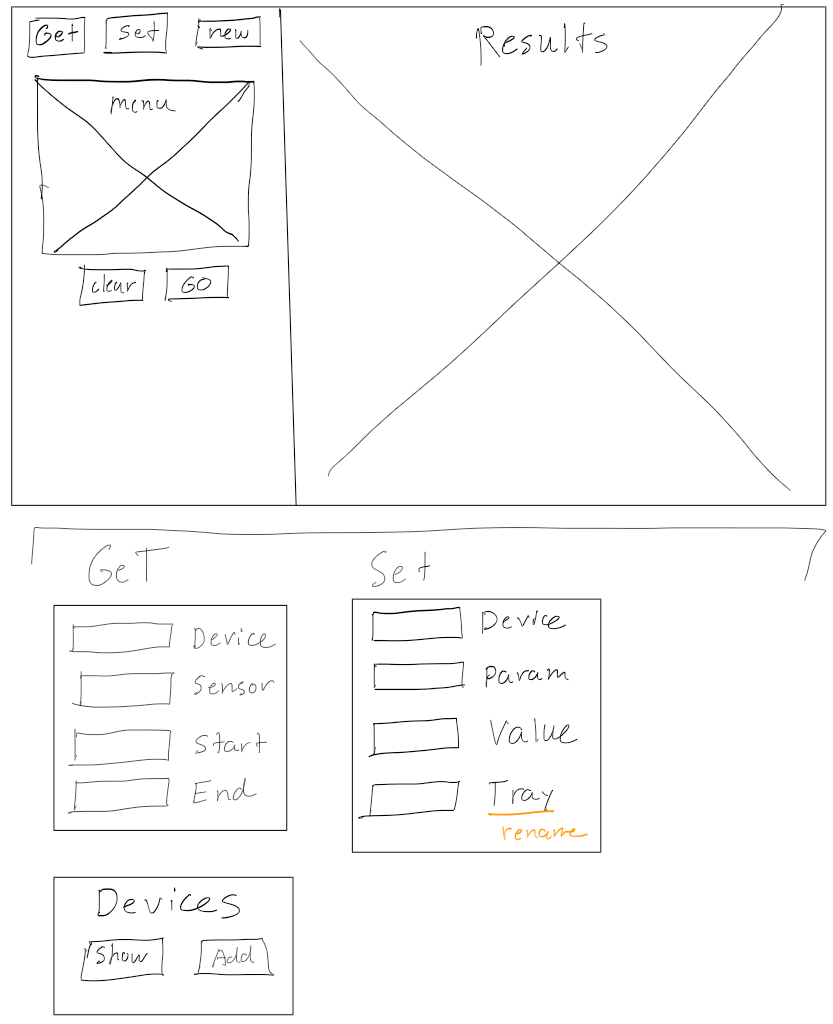 Get Set new
Results
menu
clear GO
GeT
Set
Device
Sensor
Start
End
Device
Param
Value
Tray
rename
Devices
Show Add